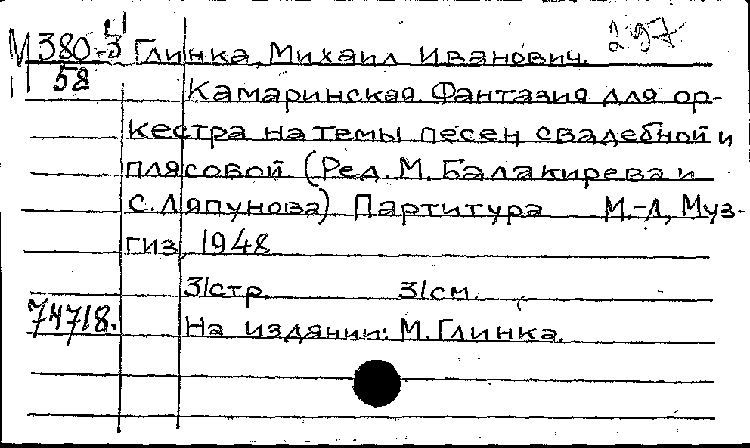 297
М 380-3 Глинка, Михаил Иванович.
58 Камаринская. Фантазия для ор-
кестра на темы песен свадебной и
плясовой (Ред. М. Балакирева и
С. Ляпунова) Партитура М.-Л, Муз-
гиз, 1948
31 стр. 31 см.
74718. На издании: М. Глинка.